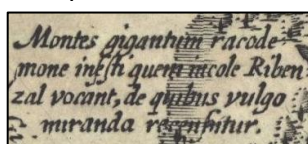 Montes gigantum racode-
mone infesti quem incole Riben
zal vocant, de quibus vulgo
miranda recensentur.